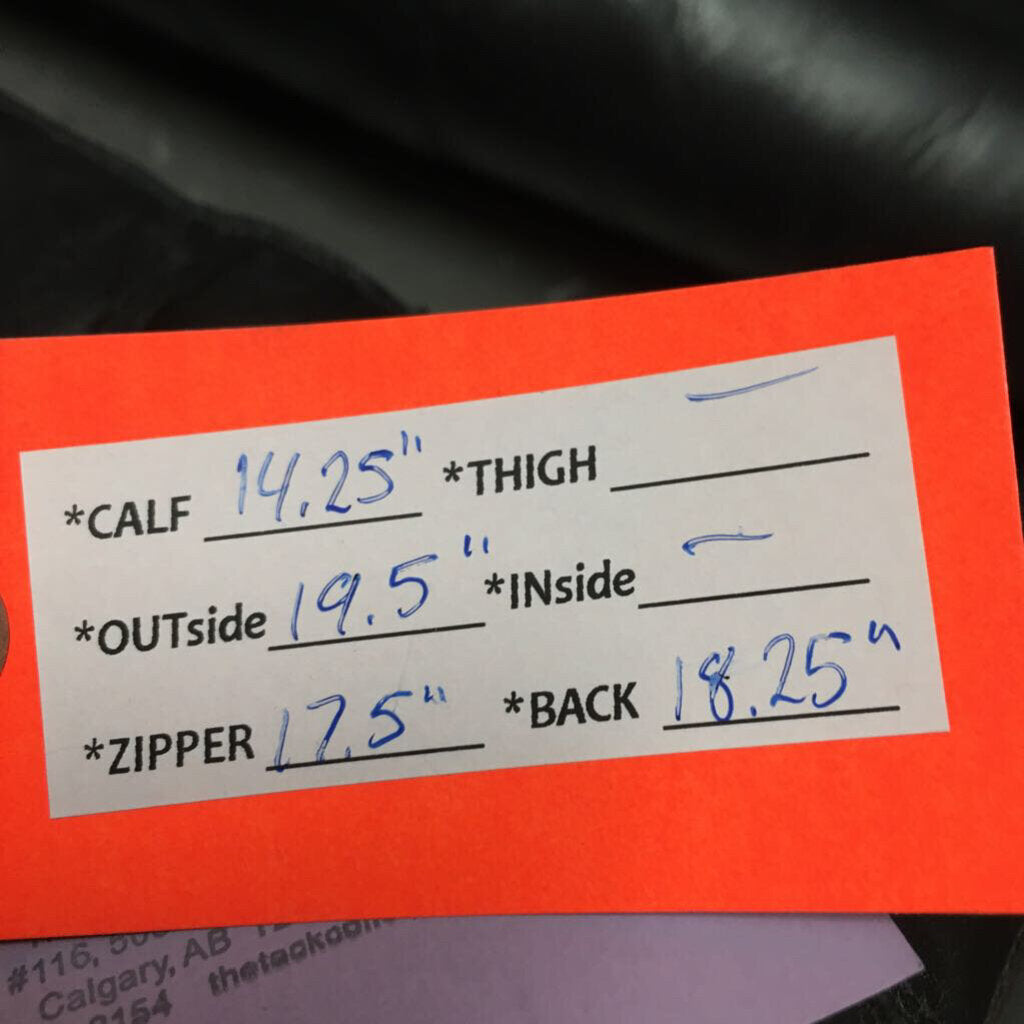 *CALF 14.25" *THIGH —
*OUTside 19.5" *INside —
*ZIPPER 17.5" *BACK 18.25"
#116,
Calgary, AB
thetackcoll